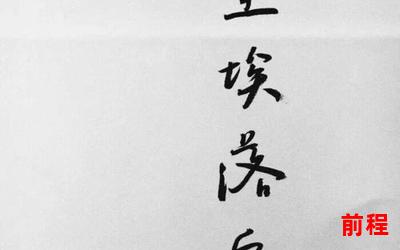 埃落
前程